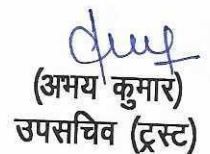 (अभय कुमार)
उपसचिव (ट्रस्ट)